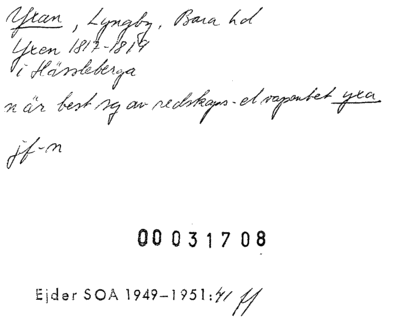 Yxan, Lyngby, Bara hd
Yxen 1817-1819
i Hässleberga
n är best sg av redskaps- el vapenbet yxa
jf-n
00031708
Ejder SOA 1949–1951:41